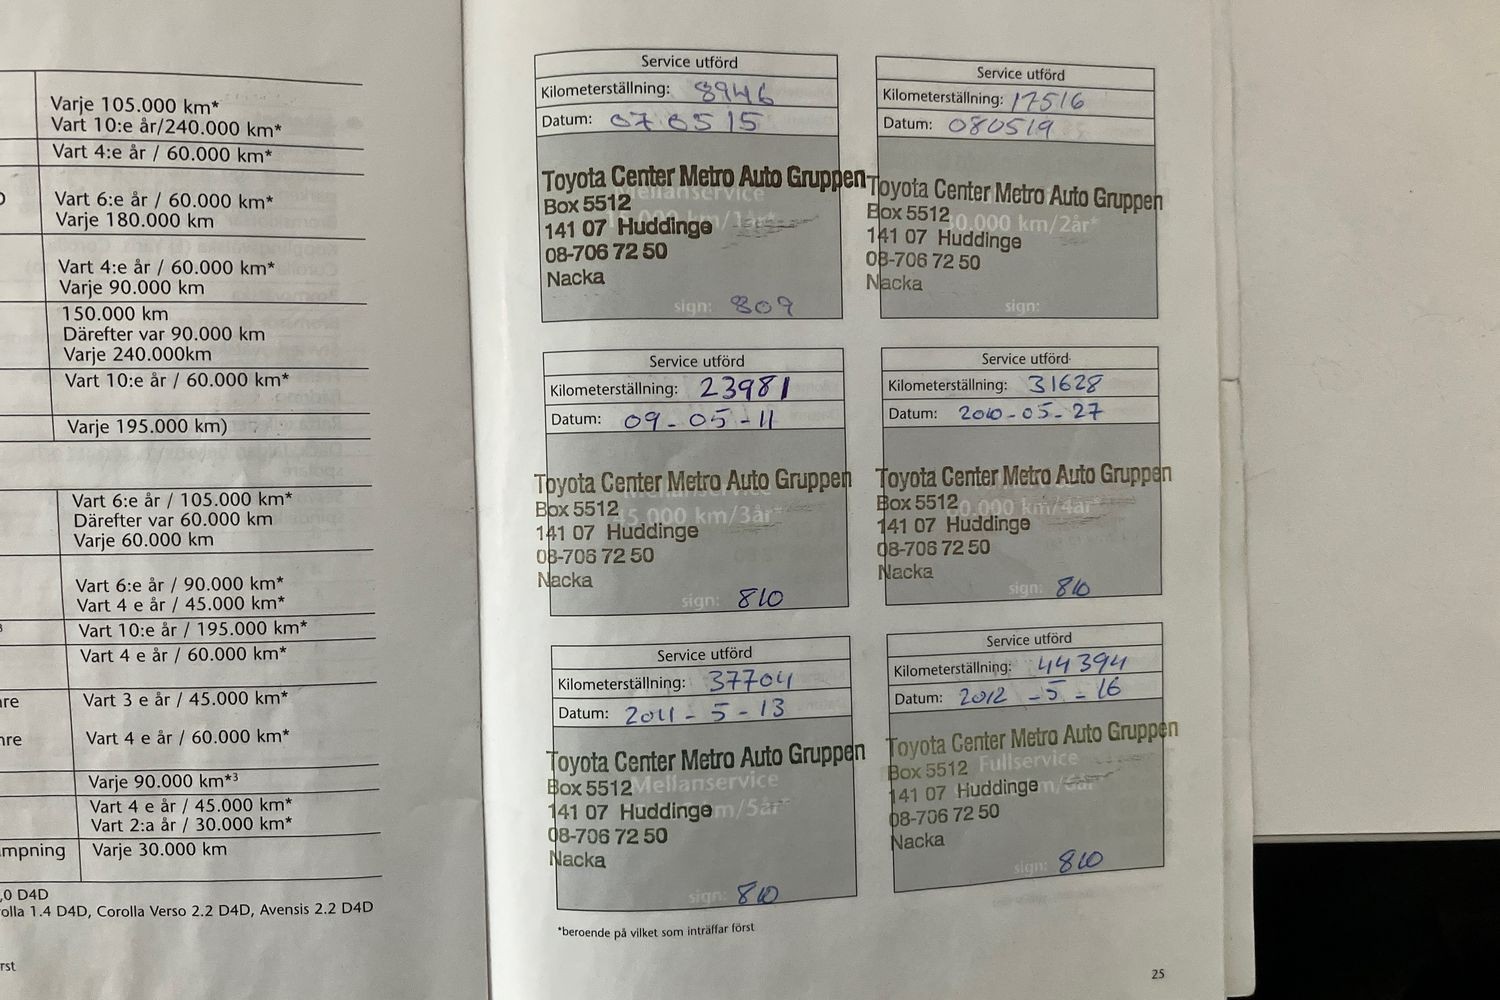 Varje 105.000 km*
Vart 10:e år/240.000 km*
Vart 4:e år / 60.000 km*
Vart 6:e år / 60.000 km*
Varje 180.000 km
Vart 4:e år / 60.000 km*
Varje 90.000 km
150.000 km
Därefter var 90.000 km
Varje 240.000km
Vart 10:e år / 60.000 km*
Varje 195.000 km)
Vart 6:e år / 105.000 km*
Därefter var 60.000 km
Varje 60.000 km
Vart 6:e år / 90.000 km*
Vart 4 e år / 45.000 km*
Vart 10:e år / 195.000 km*
Vart 4 e år / 60.000 km*
Vart 3 e år / 45.000 km*
Vart 4 e år / 60.000 km*
Varje 90.000 km*³
Vart 4 e år / 45.000 km*
Vart 2:a år / 30.000 km*
mpning Varje 30.000 km
,0 D4D
olla 1.4 D4D, Corolla Verso 2.2 D4D, Avensis 2.2 D4D
rst
Service utförd
Kilometerställning: 8946
Datum: 070515
Toyota Center Metro Auto Gruppen
Mellanservice
Box 5512
15.000 km/1år*
141 07 Huddinge
08-706 72 50
Nacka
sign: 809
Service utförd
Kilometerställning: 17516
Datum: 080519
Toyota Center Metro Auto Gruppen
Box 5512
30.000 km/2år*
141 07 Huddinge
08-706 72 50
Nacka
sign:
Service utförd
Kilometerställning: 23981
Datum: 09-05-11
Toyota Center Metro Auto Gruppen
Mellanservice
Box 5512
45.000 km/3år*
141 07 Huddinge
08-706 72 50
Nacka
sign: 810
Service utförd
Kilometerställning: 31628
Datum: 2010-05-27
Toyota Center Metro Auto Gruppen
Box 5512
60.000 km/4år*
141 07 Huddinge
08-706 72 50
Nacka
sign: 810
Service utförd
Kilometerställning: 37704
Datum: 2011-5-13
Toyota Center Metro Auto Gruppen
Mellanservice
Box 5512
141 07 Huddinge
km/5år*
08-706 72 50
Nacka
sign: 810
Service utförd
Kilometerställning: 44394
Datum: 2012-5-16
Toyota Center Metro Auto Gruppen
Fullservice
Box 5512
141 07 Huddinge
km/6år*
08-706 72 50
Nacka
sign: 810
*beroende på vilket som inträffar först
25